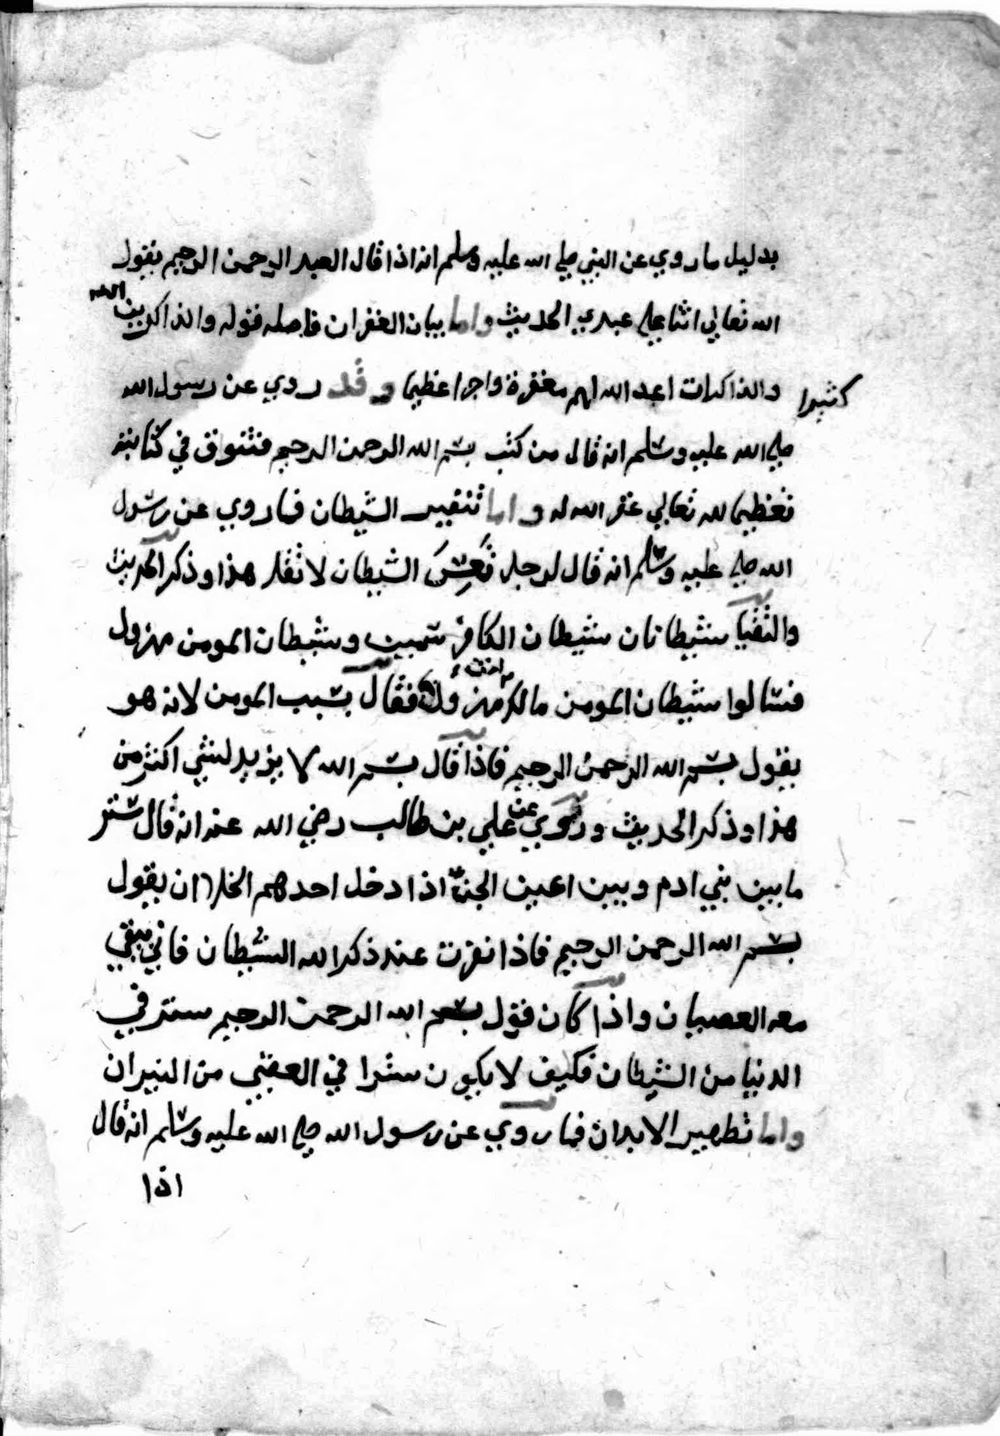 بدليل ما روي عن النبي صلي الله عليه وسلم انه اذا قال العبد الرحمن الرحيم يقول
الله تعالي اثنا علي عبدي الحديث واما بيان الغفران فاصله قوله والذاكرين الله
كثيرا والذاكرات اعد الله لهم مغفرة واجرا عظيما وقد روي عن رسول الله
صلي الله عليه وسلم انه قال من كتب بسم الله الرحمن الرحيم فتنوق في كتابته
تعظيما لله تعالي غفر الله له واما الشيطان فما روي عن رسول
الله صلي عليه وسلم انه قال لرجل تعس الشيطان لا تقل هذا وذكر الحديث
والتقيا شيطانان شيطان الكافر سمين وشيطان المومن مهزول
فسالوا شيطان المومن مالك مهزول انت فقال بسبب المومن لانه هو
يقول بسم الله الرحمن الرحيم فاذا قال بسم الله لا يزيد لشي اكثر من
هذا وذكر الحديث وروي عن علي بن طالب رضي الله عنه انه قال ستر
ما بين بني ادم وبين اعين الجن اذا دخل احدهم الخلا ان يقول
بسم الله الرحمن الرحيم فاذا نفرت عند ذكر الله الشيطان فاني يبقي
معه العصيان واذا كان قول بسم الله الرحمن الرحيم ستر في
الدنيا من الشيطان فكيف لا يكون سترا في العقبي من النيران
واما تطهير الابدان فما روي عن رسول الله صلي الله عليه وسلم انه قال
اذا